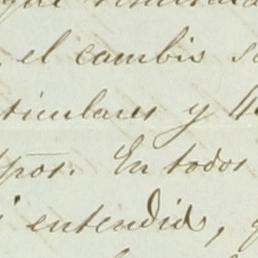 el cambio
ticulares y
pos. En todos
entendido,